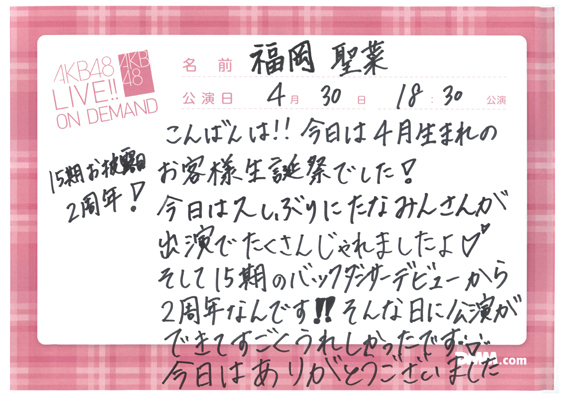 AKB48
LIVE!!
ON DEMAND
AKB
48
名前 福岡 聖菜
公演日 4月 30日 18:30 公演
15期お披露目
2周年!
こんばんは!! 今日は4月生まれの
お客様生誕祭でした!
今日は久しぶりにたなみんさんが
出演でたくさんじゃれましたよ♡
そして15期のバックダンサーデビューから
2周年なんです!! そんな日に公演が
できてすごくうれしかったです
今日はありがとうございました
DMM.com